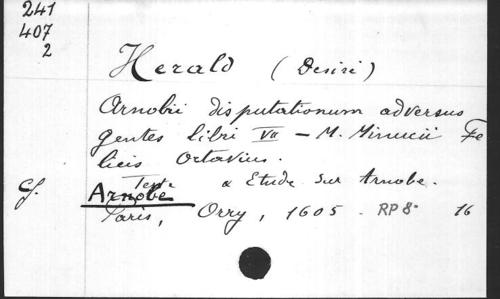 241
407
2
Herald (Desiré)
Arnobii disputationum adversus
gentes libri VII – M. Minucii Fe
licis Octavius.
Texte & Etude sur Arnobe.
Cf. Arnobe
Paris, Orry, 1605. RP 8° 16